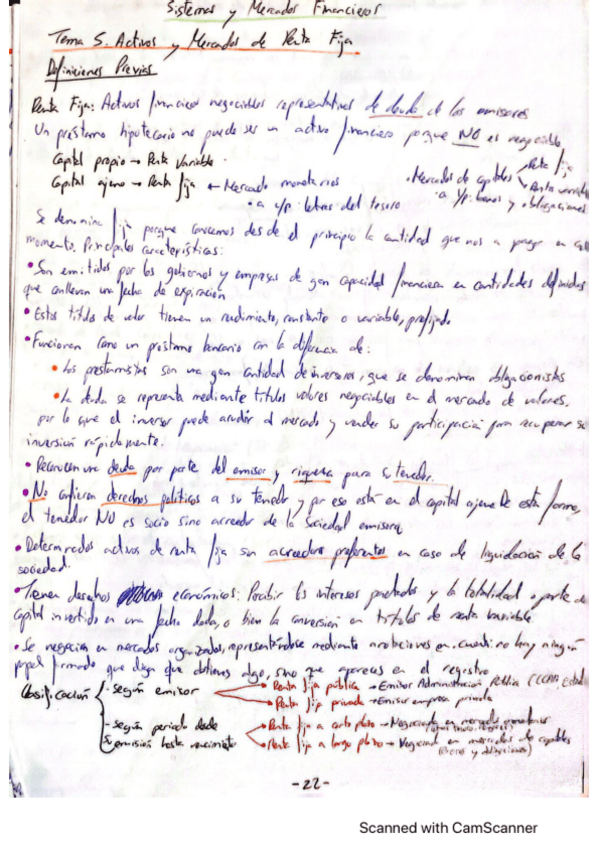 Sistemas y Mercados Financieros
Tema 5. Activos y Mercados de Renta Fija
Definiciones Previas
Renta Fija: Activos financieros negociables representativos de deuda de los emisores
Un préstamo hipotecario no puede ser un activo financiero porque NO es negociable
Capital propio → Renta Variable
Capital ajeno → Renta fija ← Mercado monetarios
• a c/p: letras del tesoro
• Mercados de capitales
Renta fija
Renta variable
a l/p: bonos y obligaciones
Se denomina fija porque conocemos desde el principio la cantidad que nos a pagar en cada
momento. Principales características:
• Son emitidos por los gobiernos y empresas de gran capacidad financiera en cantidades definidas
que conllevan una fecha de expiración
• Estos títulos de valor tienen un rendimiento, constante o variable, prefijado
• Funcionan como un préstamo bancario con la diferencia de:
• Los prestamistas son una gran cantidad de inversores, que se denominan obligacionistas
• La deuda se representa mediante títulos valores negociables en el mercado de valores,
por lo que el inversor puede acudir al mercado y vender su participación para recuperar su
inversión rápidamente.
• Reconocen una deuda por parte del emisor y riqueza para su tenedor.
• No confieren derechos políticos a su tenedor y por eso está en el capital ajeno De esta forma,
el tenedor NO es socio sino acreedor de la sociedad emisora
• Determinados activos de renta fija son acreedores preferentes en caso de liquidación de la
sociedad
• Tienen derechos económicos: Percibir los intereses pactados y la totalidad o parte de
capital invertido en una fecha dada, o bien la conversión en títulos de renta variable
• Se negocian en mercados organizados, representándose mediante anotaciones en cuenta no hay ningún
papel firmado que diga que obtienes algo, sino que apareces en el registro
Clasificación
- según emisor
• Renta fija pública → Emisor Administración Pública (CCAA, Estado
• Renta fija privada → Emisor empresa privada
- según periodo desde
su emisión hasta vencimiento
• Renta fija a corto plazo → Negociada en mercado monetario
• Renta fija a largo plazo → Negociada en mercados de capitales
(Bonos y obligaciones)
- 22 -
Scanned with CamScanner